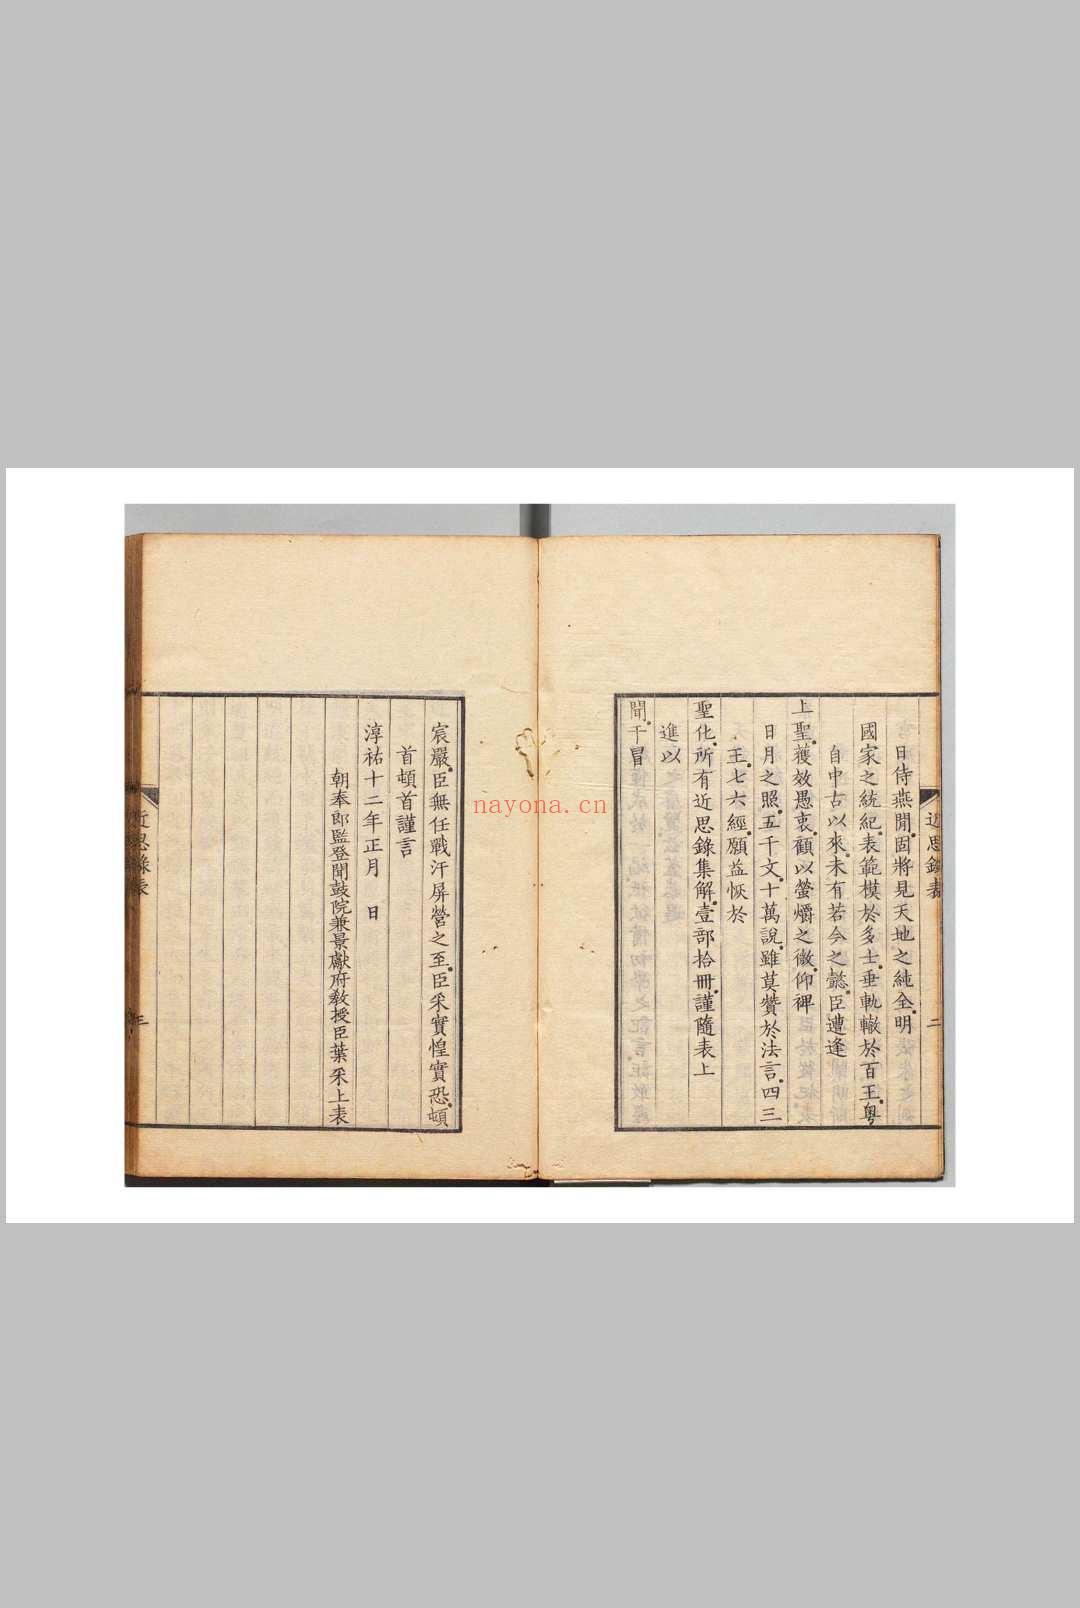 近思錄表
二
日侍燕閒固將見天地之純全明
國家之統紀表範模於多士垂軌轍於百王粤
自中古以來未有若今之懿臣遭逢
上聖獲效愚衷顧以螢爝之微仰裨
日月之照五千文十萬說雖莫贊於法言四三
王七六經願益恢於
聖化所有近思錄集解壹部拾冊謹隨表上
進以
聞干冒
宸嚴臣無任戰汗屏營之至臣采實惶實恐頓
首頓首謹言
淳祐十二年正月 日
朝奉郎監登聞鼓院兼景獻府教授臣葉采上表
近思錄表
三
nayona.cn